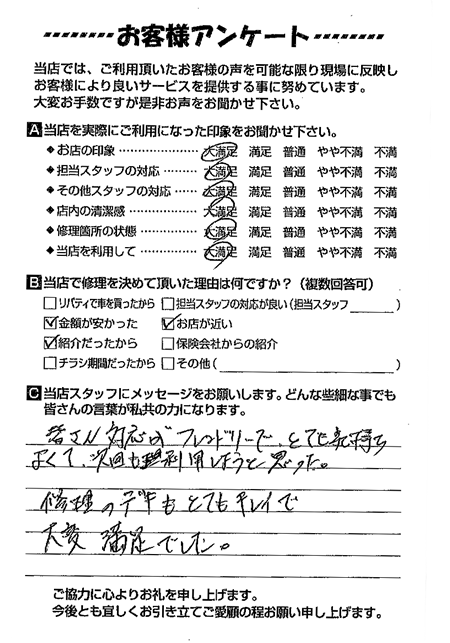 お客様アンケート
当店では、ご利用頂いたお客様の声を可能な限り現場に反映し
お客様により良いサービスを提供する事に努めています。
大変お手数ですが是非お声をお聞かせ下さい。
A 当店を実際にご利用になった印象をお聞かせ下さい。
◆お店の印象 …………………… 大満足 満足 普通 やや不満 不満
◆担当スタッフの対応 ……… 大満足 満足 普通 やや不満 不満
◆その他スタッフの対応 …… 大満足 満足 普通 やや不満 不満
◆店内の清潔感 ……………… 大満足 満足 普通 やや不満 不満
◆修理箇所の状態 …………… 大満足 満足 普通 やや不満 不満
◆当店を利用して …………… 大満足 満足 普通 やや不満 不満
B 当店で修理を決めて頂いた理由は何ですか？（複数回答可）
□リバティで車を買ったから □担当スタッフの対応が良い（担当スタッフ ）
☑金額が安かった ☑お店が近い
☑紹介だったから □保険会社からの紹介
□チラシ期間だったから □その他（ ）
C 当店スタッフにメッセージをお願いします。どんな些細な事でも
皆さんの言葉が私共の力になります。
皆さん対応がフレンドリーで、とても気持ち
よくて、次回も利用しようと思った。
修理のデキもとてもキレイで
大変満足でした。
ご協力に心よりお礼を申し上げます。
今後とも宜しくお引き立てご愛顧の程お願い申し上げます。